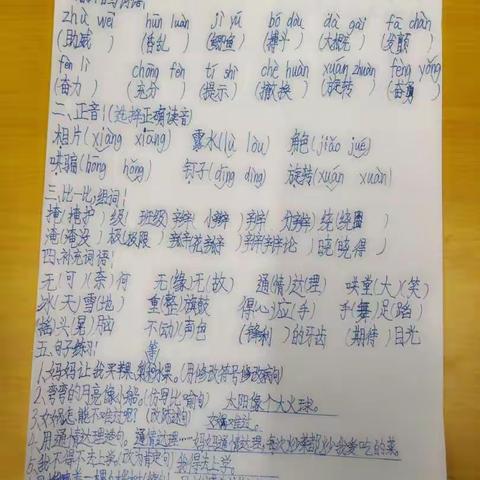 zhù wēi hūn luàn jì yú bó dòu dà gài fā chàn
(助威) (昏乱) (鲫鱼) (搏斗) (大概) (发颤)
fèn lì chōng fèn tí shì chè huàn xuán zhuǎn fèng yǒng
(奋力) (充分) (提示) (撤换) (旋转) (奋勇)
二、正音!(选择正确读音)
相片(xiàng xiāng) 露水(lù lòu) 角色(jiǎo jué)
哄骗(hōng hǒng) 钉子(dīng dìng) 旋转(xuán xuàn)
三、比一比,组词:
掩(掩护) 级(班级) 辫(小辫) 辩( ) 绕(绕圈)
淹(淹没) 极(极限) 辩论) 晓(晓得)
四、补充词语:
无(可)(奈)何 无(缘)无(故) 通(情)达(理) 哄堂(大)(笑)
冰(天)雪(地) 重(整)旗鼓 得(心)应(手) 手(舞)足(蹈)
摇(头)(晃)脑 不动(声)色 (锋利)的牙齿 (期待)目光
五、句子练习:
1、妈妈让我买苹果、水果。(用修改符号修改病句)
2、弯弯的月亮像小船。(仿写比喻句) 太阳像个大火球。
4、用通情达理造句。通情达理……妈妈通情达理,每次炒菜都炒我爱吃的菜。
5、我不得不去上学。(改为肯定句)我得去上学。